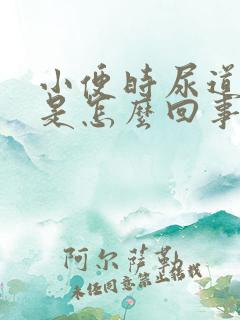 小便时尿道
是怎麽回事
阿尔萨勒
未经同意禁止转载